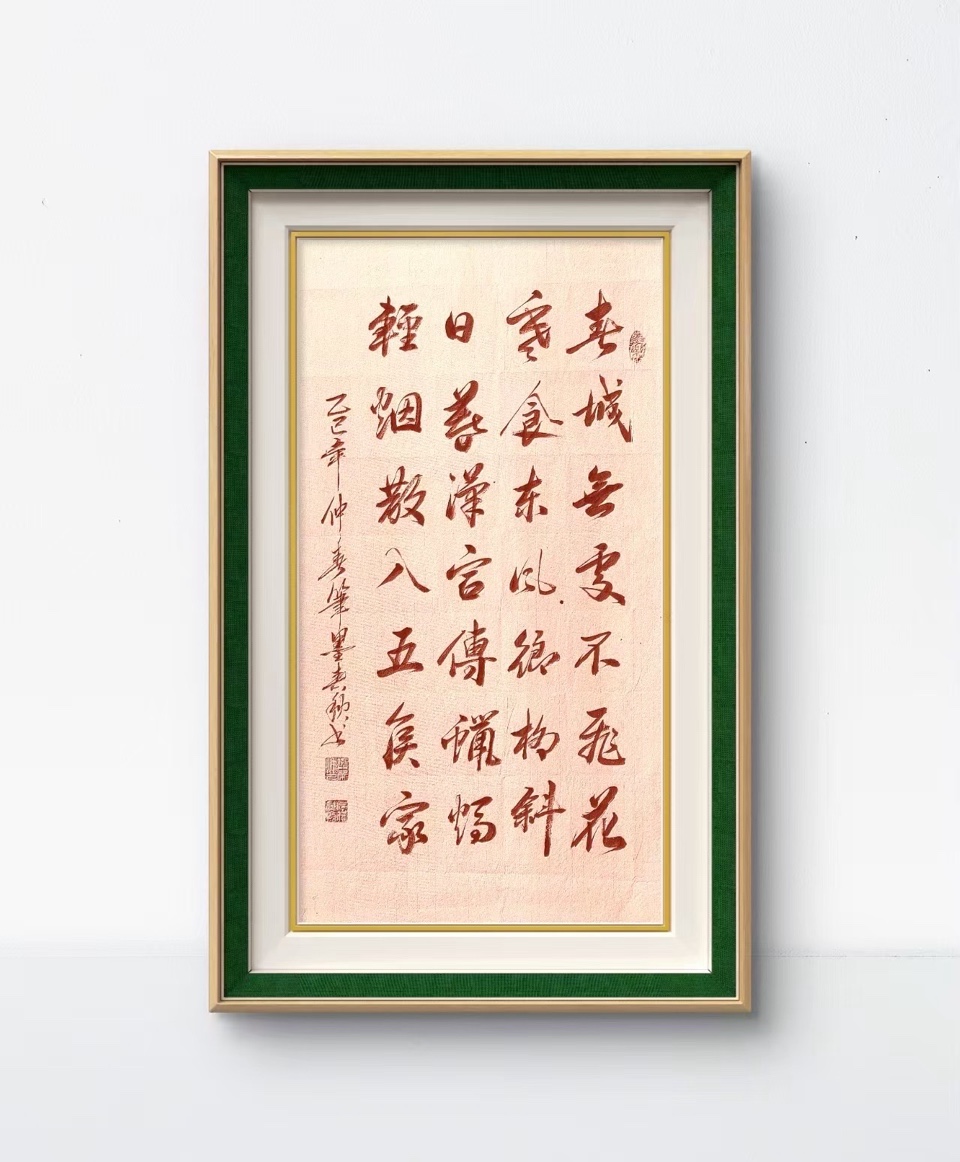 春城無處不飛花
寒食东風御柳斜
日暮漢宮傳蠟燭
輕烟散入五侯家
乙巳年仲春筆墨春秋书